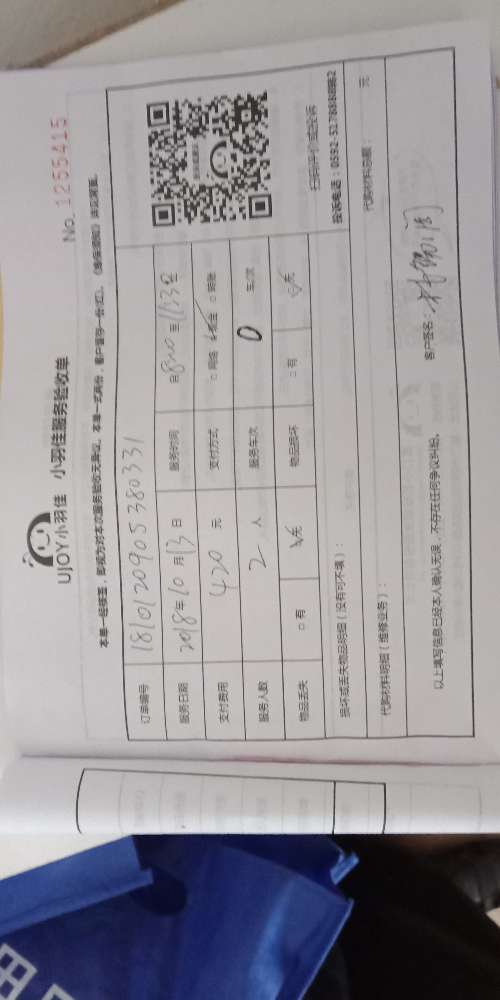 No. 1255415
UJOY小羽佳 小羽佳服务验收单
本单一经签签,即视为对本次服务验收无异议。本单一式两份,客户留存一份(红)。
订单编号 1810120905380331
服务日期 2018年10月13日 服务时间 自8:00至11:33
支付费用 420 元 支付方式 □网络 □现金 □转账
服务人数 2 人 服务车次 0 车次
物品丢失 □有 无 物品损坏 □有 无
扫码评价或投诉
投诉电话:0592-5178888转2
损坏或丢失物品明细(没有可不填):
代购材料明细(维修业务): 代购材料总额: 元
以上填写信息已经本人确认无误,不存在任何争议纠纷。 客户签名: